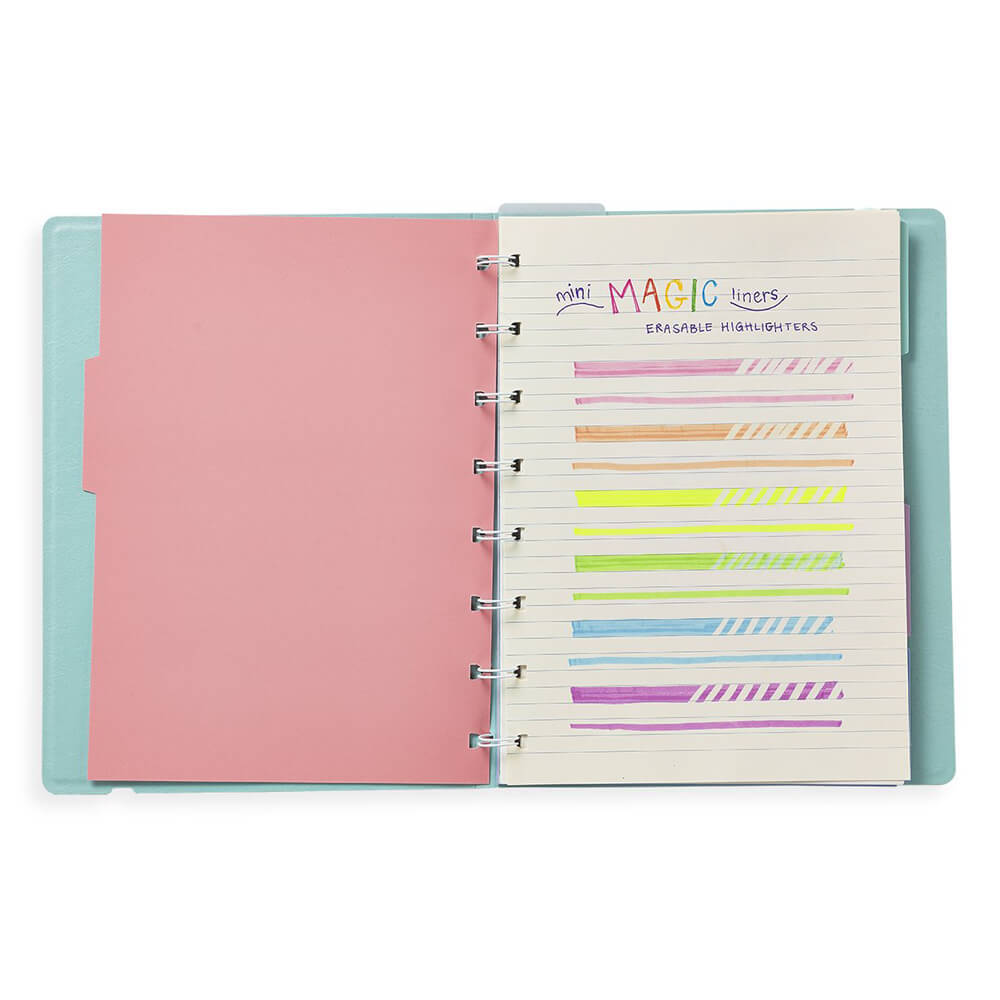 mini MAGIC liners
ERASABLE HIGHLIGHTERS